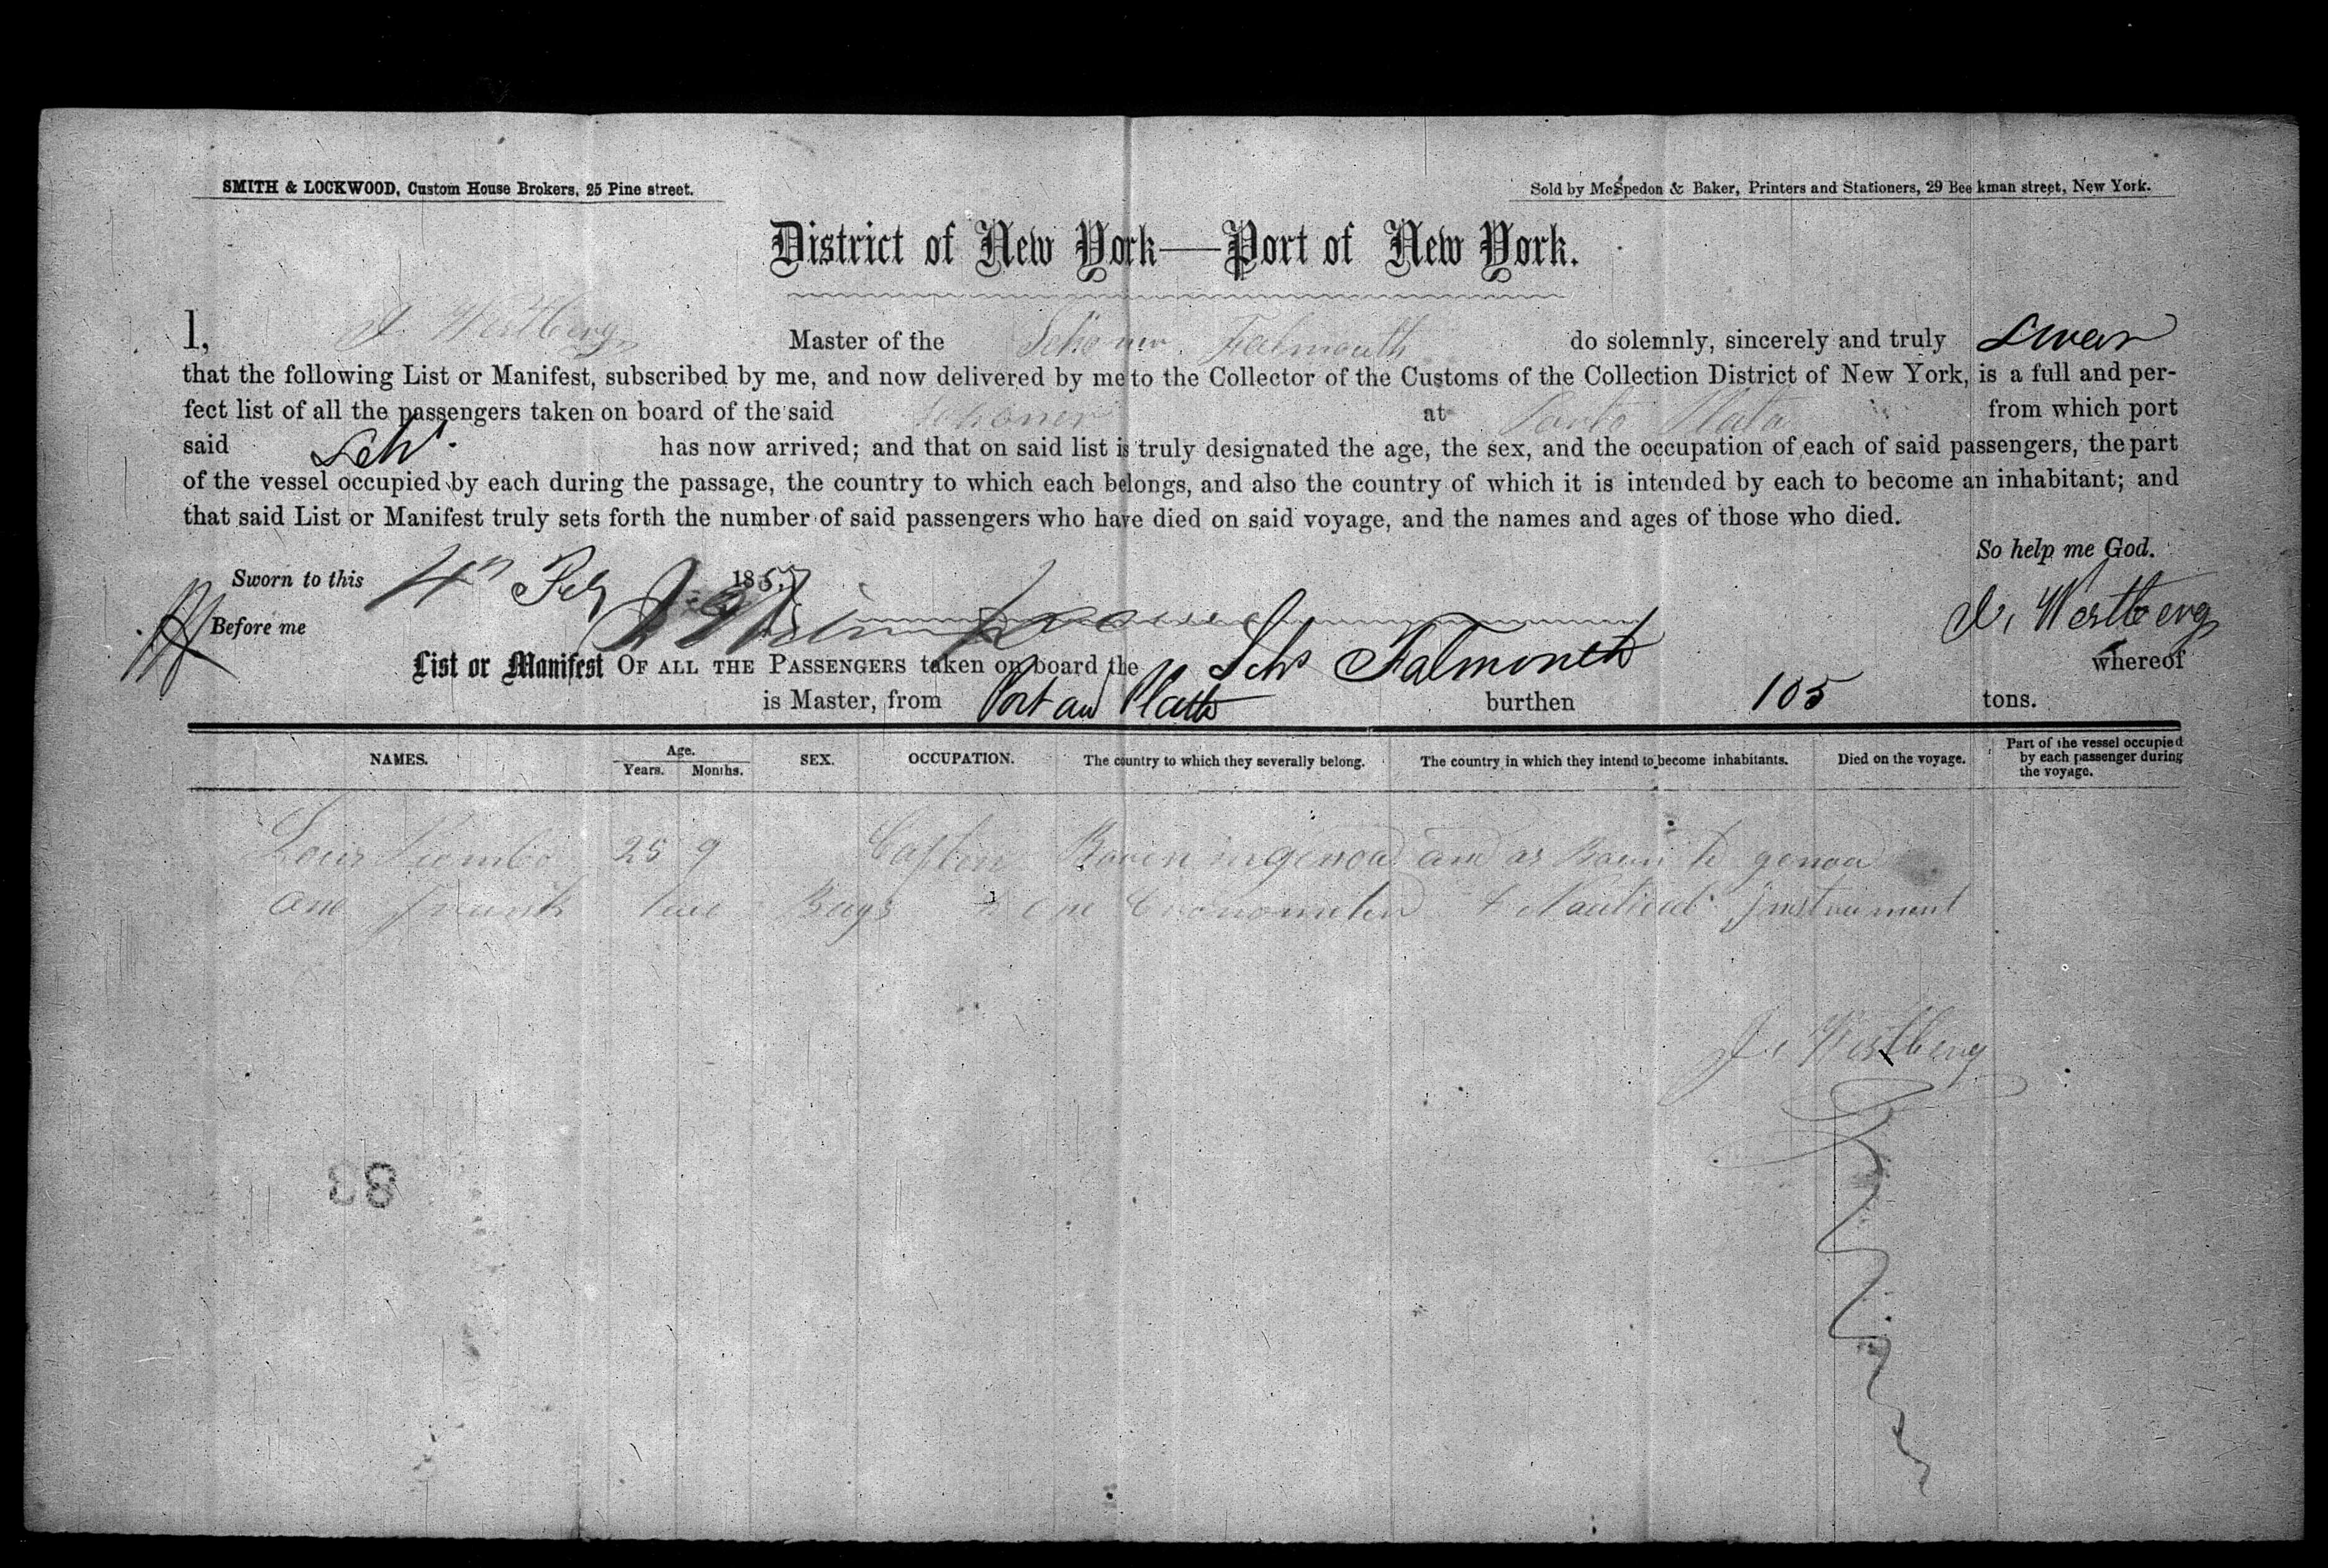 SMITH & LOCKWOOD, Custom House Brokers, 25 Pine street.
Sold by McSpedon & Baker, Printers and Stationers, 29 Bee kman street, New York.
District of New York—Port of New York.
I, J. Westberg Master of the Schoner Falmouth do solemnly, sincerely and truly Swear
that the following List or Manifest, subscribed by me, and now delivered by me to the Collector of the Customs of the Collection District of New York, is a full and per-
fect list of all the passengers taken on board of the said Schoner at Porto Plata from which port
said Schr. has now arrived; and that on said list is truly designated the age, the sex, and the occupation of each of said passengers, the part
of the vessel occupied by each during the passage, the country to which each belongs, and also the country of which it is intended by each to become an inhabitant; and
that said List or Manifest truly sets forth the number of said passengers who have died on said voyage, and the names and ages of those who died.
So help me God.
Sworn to this 4th Feby 185
Before me
J. Westberg
List or Manifest OF ALL THE PASSENGERS taken on board the Schr Falmouth whereof
is Master, from Port au Platte burthen 105 tons.
NAMES. Age. Years. Months. SEX. OCCUPATION. The country to which they severally belong. The country in which they intend to become inhabitants. Died on the voyage. Part of the vessel occupied by each passenger during the voyage.
Louis 25 9 Capten in genoa and as to genoa
One Trunk two Bags & One Cronometer & Nautical Instrument
J. Westberg
83